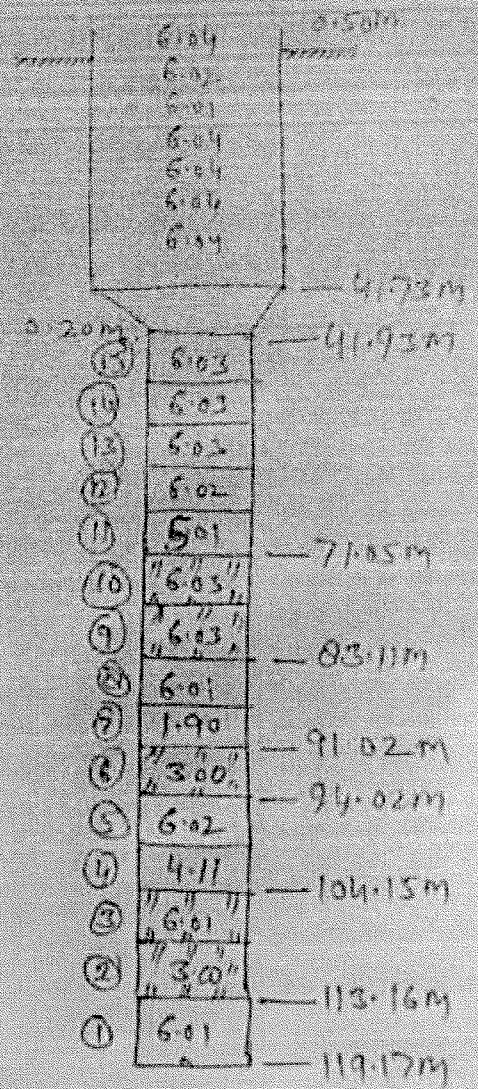 6.04 0.50m
6.02
6.01
6.04
6.04
6.04
6.04
41.73m
0.20m
41.93m
15 6.03
14 6.03
13 6.03
12 6.02
11 5.01
71.05m
10 6.03
9 6.03
83.11m
8 6.01
7 1.90
91.02m
6 3.00
94.02m
5 6.02
4 4.11
104.15m
3 6.01
2 3.00
113.16m
1 6.01
119.17m